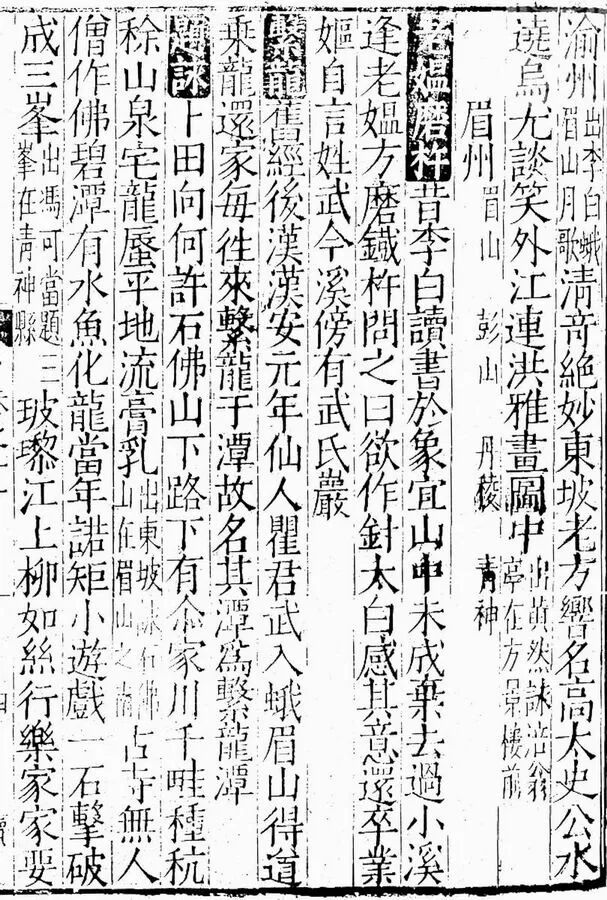 渝州出李白蛾眉山月歌清音絶妙東坡老方響名高太史公水
遶烏尤談笑外江連洪雅畫圖中出黄然詠涪翁亭在方景樓前
眉州 眉山 彭山 丹稜 青神
老媪磨杵昔李白讀書於象宜山中未成棄去過小溪
逢老媪方磨鐵杵問之曰欲作針太白感其意還卒業
嫗自言姓武今溪傍有武氏巖
繫龍舊經後漢漢安元年仙人瞿君武入蛾眉山得道
乘龍還家每徃來繫龍于潭故名其潭爲繫龍潭
題詠卜田向何許石佛山下路下有尒家川千畦種秔
稌山泉宅龍蜃平地流膏乳出東坡詠石佛山在眉山之南古寺無人
僧作佛碧潭有水魚化龍當年諾矩小遊戲一石擊破
成三峯出馮可當題三峯在青神縣玻瓈江上柳如絲行樂家家要